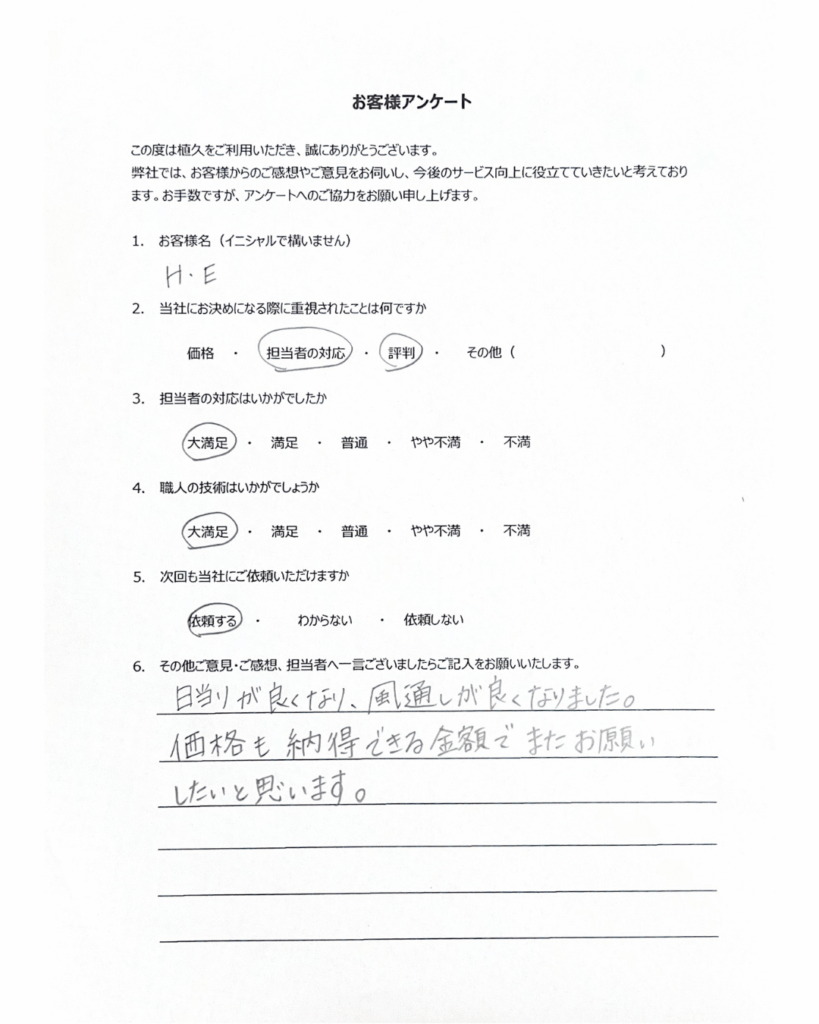 お客様アンケート
この度は植久をご利用いただき、誠にありがとうございます。
弊社では、お客様からのご感想やご意見をお伺いし、今後のサービス向上に役立てていきたいと考えており
ます。お手数ですが、アンケートへのご協力をお願い申し上げます。
1. お客様名（イニシャルで構いません）
H・E
2. 当社にお決めになる際に重視されたことは何ですか
価格 ・ 担当者の対応 ・ 評判 ・ その他（ ）
3. 担当者の対応はいかがでしたか
大満足 ・ 満足 ・ 普通 ・ やや不満 ・ 不満
4. 職人の技術はいかがでしょうか
大満足 ・ 満足 ・ 普通 ・ やや不満 ・ 不満
5. 次回も当社にご依頼いただけますか
依頼する ・ わからない ・ 依頼しない
6. その他ご意見・ご感想、担当者へ一言ございましたらご記入をお願いいたします。
日当りが良くなり、風通しが良くなりました。
価格も納得できる金額でまたお願い
したいと思います。